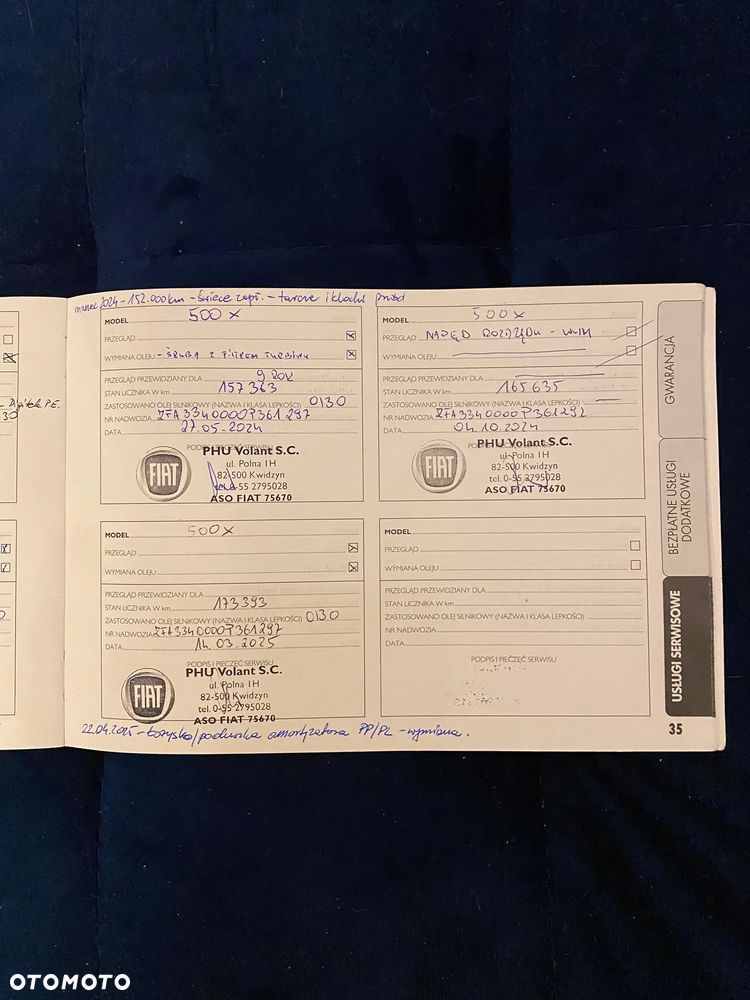 marzec 2024 - 152.000 km - świece zapł. - tarcze i klocki przód
MODEL 500 X
PRZEGLĄD
WYMIANA OLEJU - ŚRUBA Z FILTREM TURBINY
PRZEGLĄD PRZEWIDZIANY DLA 9 ROK
STAN LICZNIKA W km 157 363
ZASTOSOWANO OLEJ SILNIKOWY (NAZWA I KLASA LEPKOŚCI) 0130
NR NADWOZIA ZFA3340000P361297
DATA 27.05.2024
PODPIS I PIECZĘĆ SERWISU
FIAT
PHU Volant S.C.
ul. Polna 1H
82-500 Kwidzyn
tel. 0-55 2795028
ASO FIAT 75670
MODEL 500 X
PRZEGLĄD NAPĘD ROZRZĄDU - WYM
WYMIANA OLEJU
PRZEGLĄD PRZEWIDZIANY DLA
STAN LICZNIKA W km 165 635
ZASTOSOWANO OLEJ SILNIKOWY (NAZWA I KLASA LEPKOŚCI)
NR NADWOZIA ZFA3340000P361297
DATA 04.10.2024
FIAT
PHU Volant S.C.
ul. Polna 1H
82-500 Kwidzyn
tel. 0-55 2795028
ASO FIAT 75670
MODEL 500 X
PRZEGLĄD
WYMIANA OLEJU
PRZEGLĄD PRZEWIDZIANY DLA
STAN LICZNIKA W km 173393
ZASTOSOWANO OLEJ SILNIKOWY (NAZWA I KLASA LEPKOŚCI) 0130
NR NADWOZIA ZFA3340000P361297
DATA 14.03.2025
PODPIS I PIECZĘĆ SERWISU
FIAT
PHU Volant S.C.
ul. Polna 1H
82-500 Kwidzyn
tel. 0-55 2795028
ASO FIAT 75670
MODEL
PRZEGLĄD
WYMIANA OLEJU
PRZEGLĄD PRZEWIDZIANY DLA
STAN LICZNIKA W km
ZASTOSOWANO OLEJ SILNIKOWY (NAZWA I KLASA LEPKOŚCI)
NR NADWOZIA
DATA
PODPIS I PIECZĘĆ SERWISU
22.04.2025 - łożyska/poduszka amortyzatora PP/PL - wymiana.
GWARANCJA
BEZPŁATNE USŁUGI
DODATKOWE
USŁUGI SERWISOWE
35
OTOMOTO